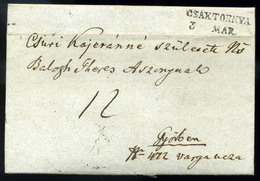 CSÁKTORNYA
3 MAR.
Csúri Kajeránné születete Ns
Balogh Theres Aszonynak
12
Győrben
Nro 472 varga ucza